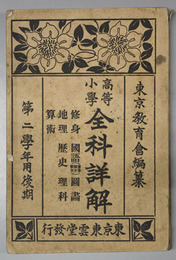 東京教育會編纂
高等
小學
全科詳解
修身 國語 圖畫
地理 歷史 理科
算術
第二學年用後期
東京東雲堂發行